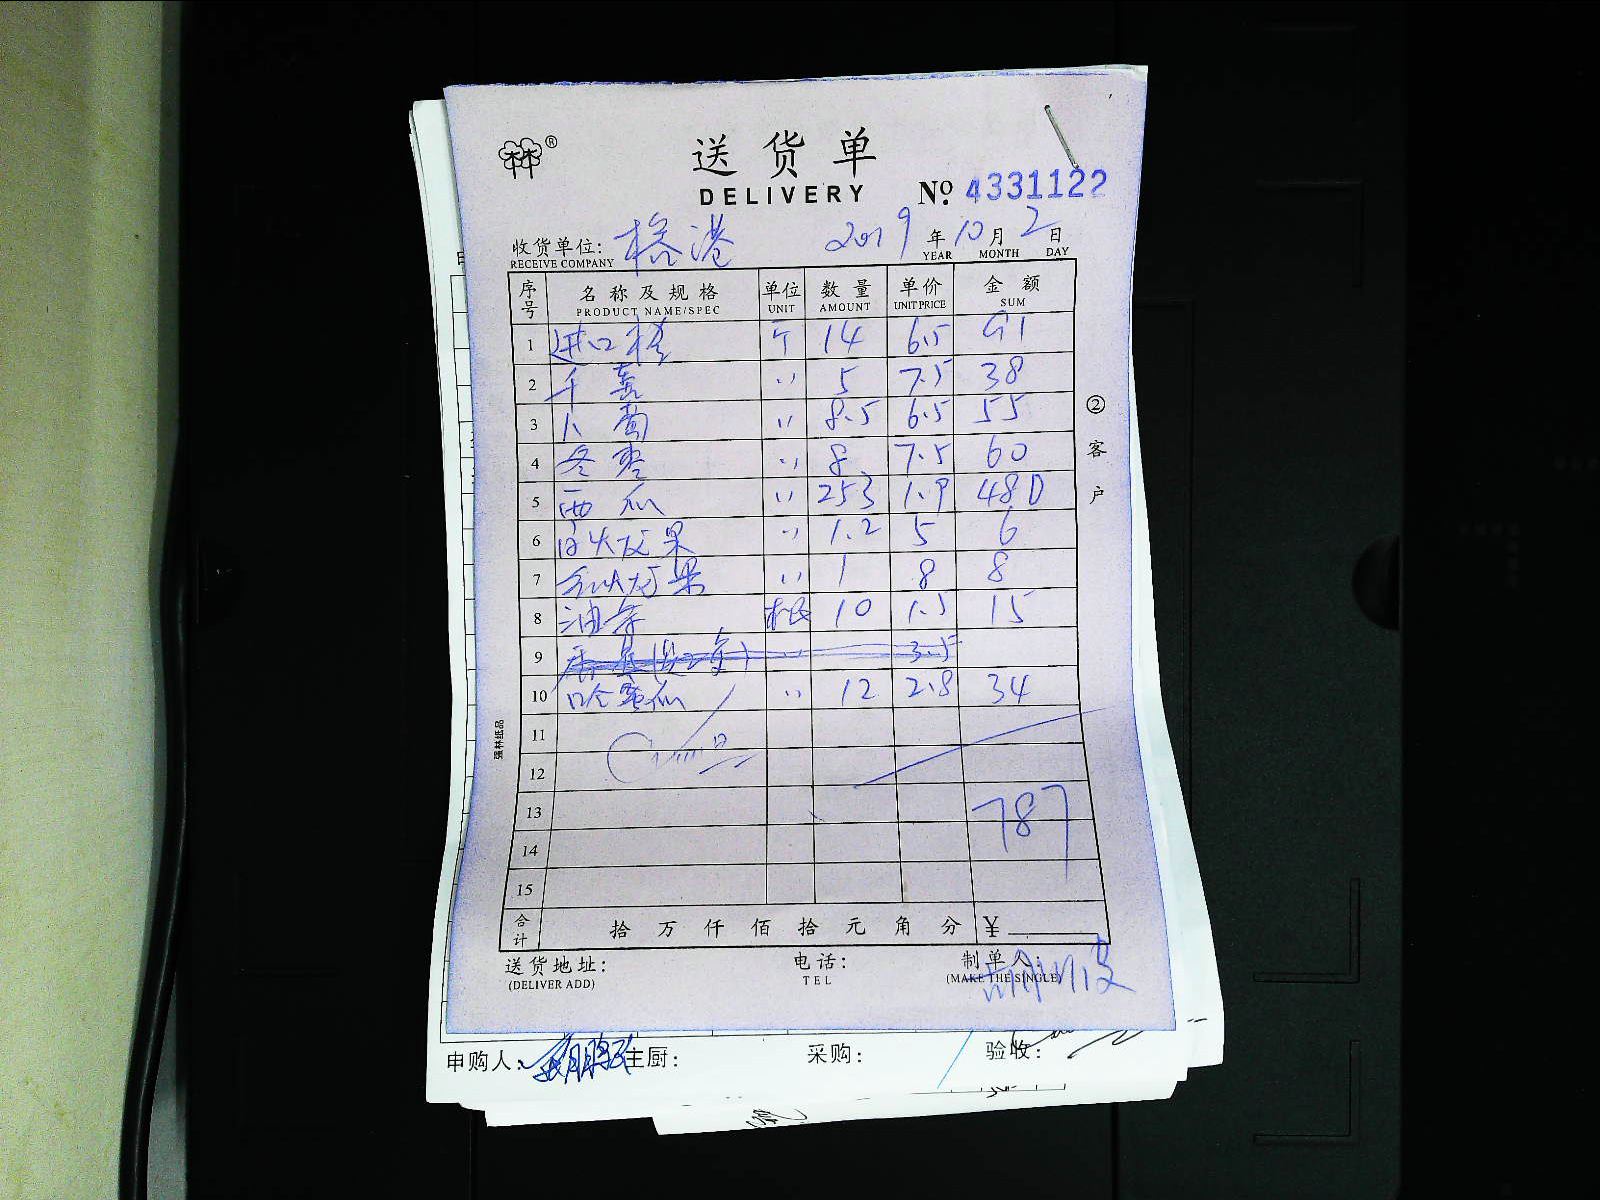 林林®
送货单
DELIVERY No. 4331122
收货单位: 港 2019年10月2日
RECEIVE COMPANY YEAR MONTH DAY
序号 名称及规格 单位 数量 单价 金额
PRODUCT NAME/SPEC UNIT AMOUNT UNIT PRICE SUM
1 进口 斤 14 6.5 91
2 千禧 〃 5 7.5 38
3 〃 8.5 6.5 55
4 冬枣 〃 8 7.5 60
5 西瓜 〃 253 1.9 480
6 白火龙果 〃 1.2 5 6
7 红火龙果 〃 1 8 8
8 油条 根 10 1.5 15
9 〃 3.5
10 哈蜜瓜 〃 12 2.8 34
11
12
13 787
14
15
合计 拾万仟佰拾元角分 ¥
送货地址: 电话: 制单人:
(DELIVER ADD) TEL (MAKE THE SINGLE)
②客户
强林纸品
申购人: 主厨: 采购: 验收: